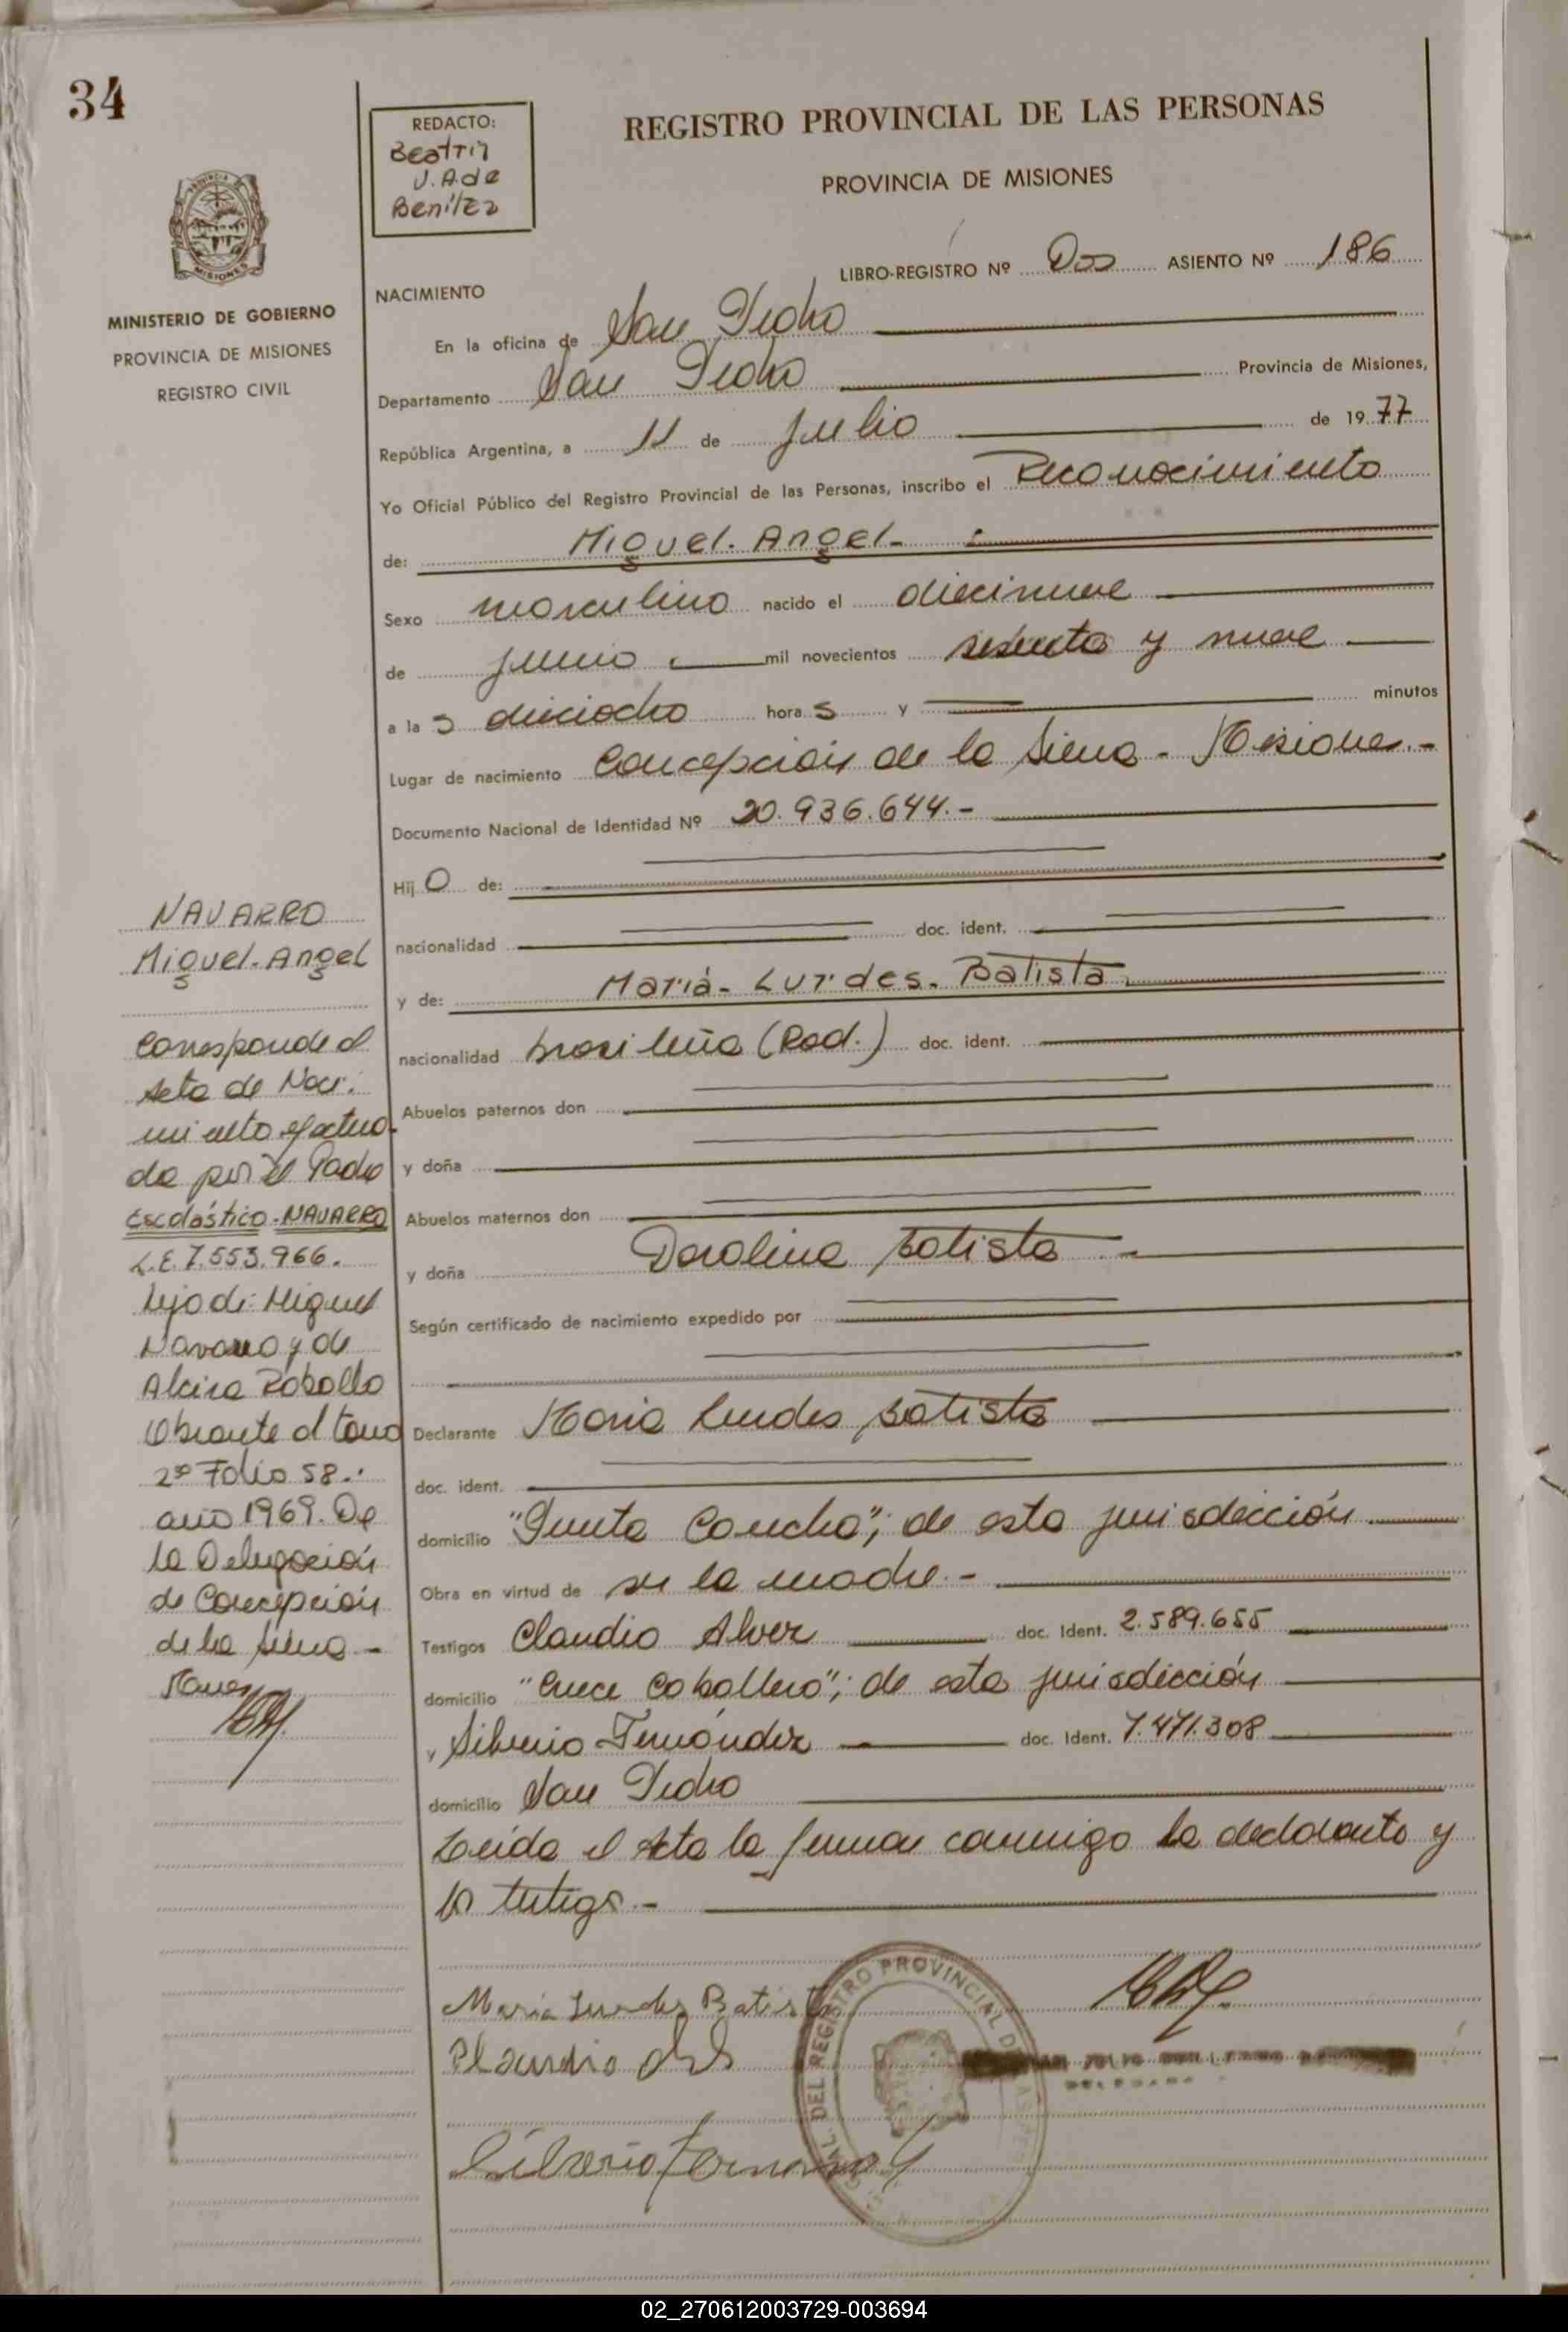 34
REDACTO:
Beatriz
V. A. de
Benítez
REGISTRO PROVINCIAL DE LAS PERSONAS
PROVINCIA DE MISIONES
MISIONES
MINISTERIO DE GOBIERNO
PROVINCIA DE MISIONES
REGISTRO CIVIL
LIBRO-REGISTRO Nº Dos ASIENTO Nº 186
NACIMIENTO
En la oficina de San Pedro
Departamento San Pedro Provincia de Misiones,
República Argentina, a 11 de Julio de 1977
Yo Oficial Público del Registro Provincial de las Personas, inscribo el Reconocimiento
de: Miguel. Angel.-
Sexo masculino nacido el diecinueve
de junio mil novecientos sesenta y nueve
a las dieciocho horas y minutos
Lugar de nacimiento Concepción de la Sierra - Misiones.-
Documento Nacional de Identidad Nº 20.936.644.-
Hijo de:
nacionalidad doc. ident.
y de: María - Lurdes. Batista
nacionalidad brasileña (Rad.) doc. ident.
Abuelos paternos don
y doña
Abuelos maternos don
y doña Dorolina Batista
Según certificado de nacimiento expedido por
Declarante María Lurdes Batista
doc. ident.
domicilio "Punta Concho"; de esta jurisdicción
Obra en virtud de ser la madre.-
Testigos Claudio Alvez doc. Ident. 2.589.655
domicilio "Cruce Caballero"; de esta jurisdicción
y Silverio Fernández doc. Ident. 7.471.308
domicilio San Pedro
Leída el Acta la firman conmigo la declarante y
los testigos.-
NAVARRO
Miguel-Angel
Corresponde al
Acta de Naci-
miento efectua-
da por el Padre
Escolástico-NAVARRO
L.E. 7.553.966.
hijo de: Miguel
Navarro y de
Alcira Roballo
Obrante al tomo
2º Folio 58.
año 1969. De
la Delegación
de Concepción
de la Sierra -
María Lurdes Batista
Claudio
Silverio Fernandez
DEL REGISTRO PROVINCIAL DE LAS
JULIO
02_270612003729-003694